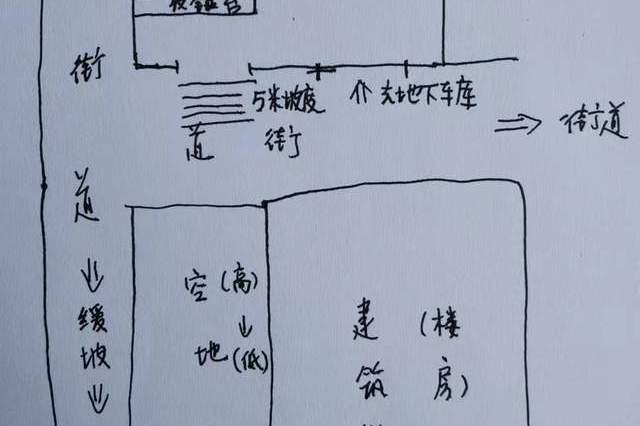 街
5米坡度
个 去地下车库
街道
道 街
道
空(高)
地(低)
缓
坡
建(楼
筑 房)